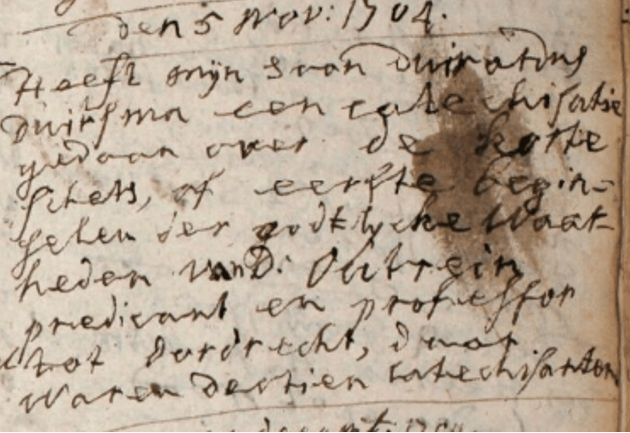 den 5 Nov: 1704.
Heeft mijn soon Duiratius
Duirsma een catechisatie
gedaan over de korte
schets, of eerste begin-
selen der godtlycke waar-
heden van D: Outrein
predicant en professor
tot Dordrecht, daar
waren dertien catechisanten